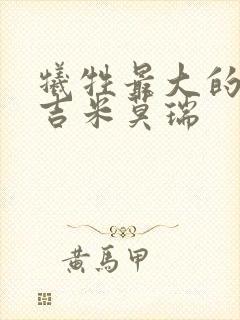 犧牲最大的
吉米莫瑞
黃馬甲